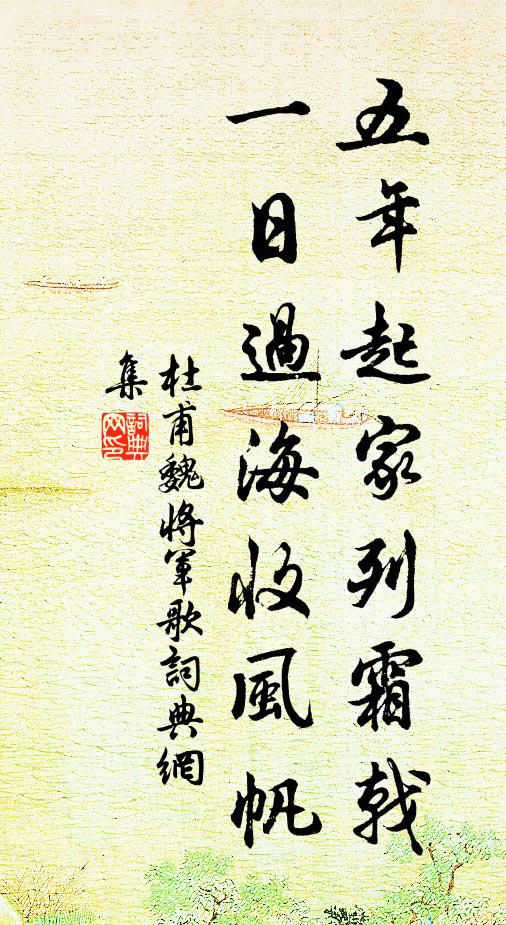 五年起家列霜戟
一日過海收風帆
杜甫魏將軍歌詞典網
集
詞典
网印